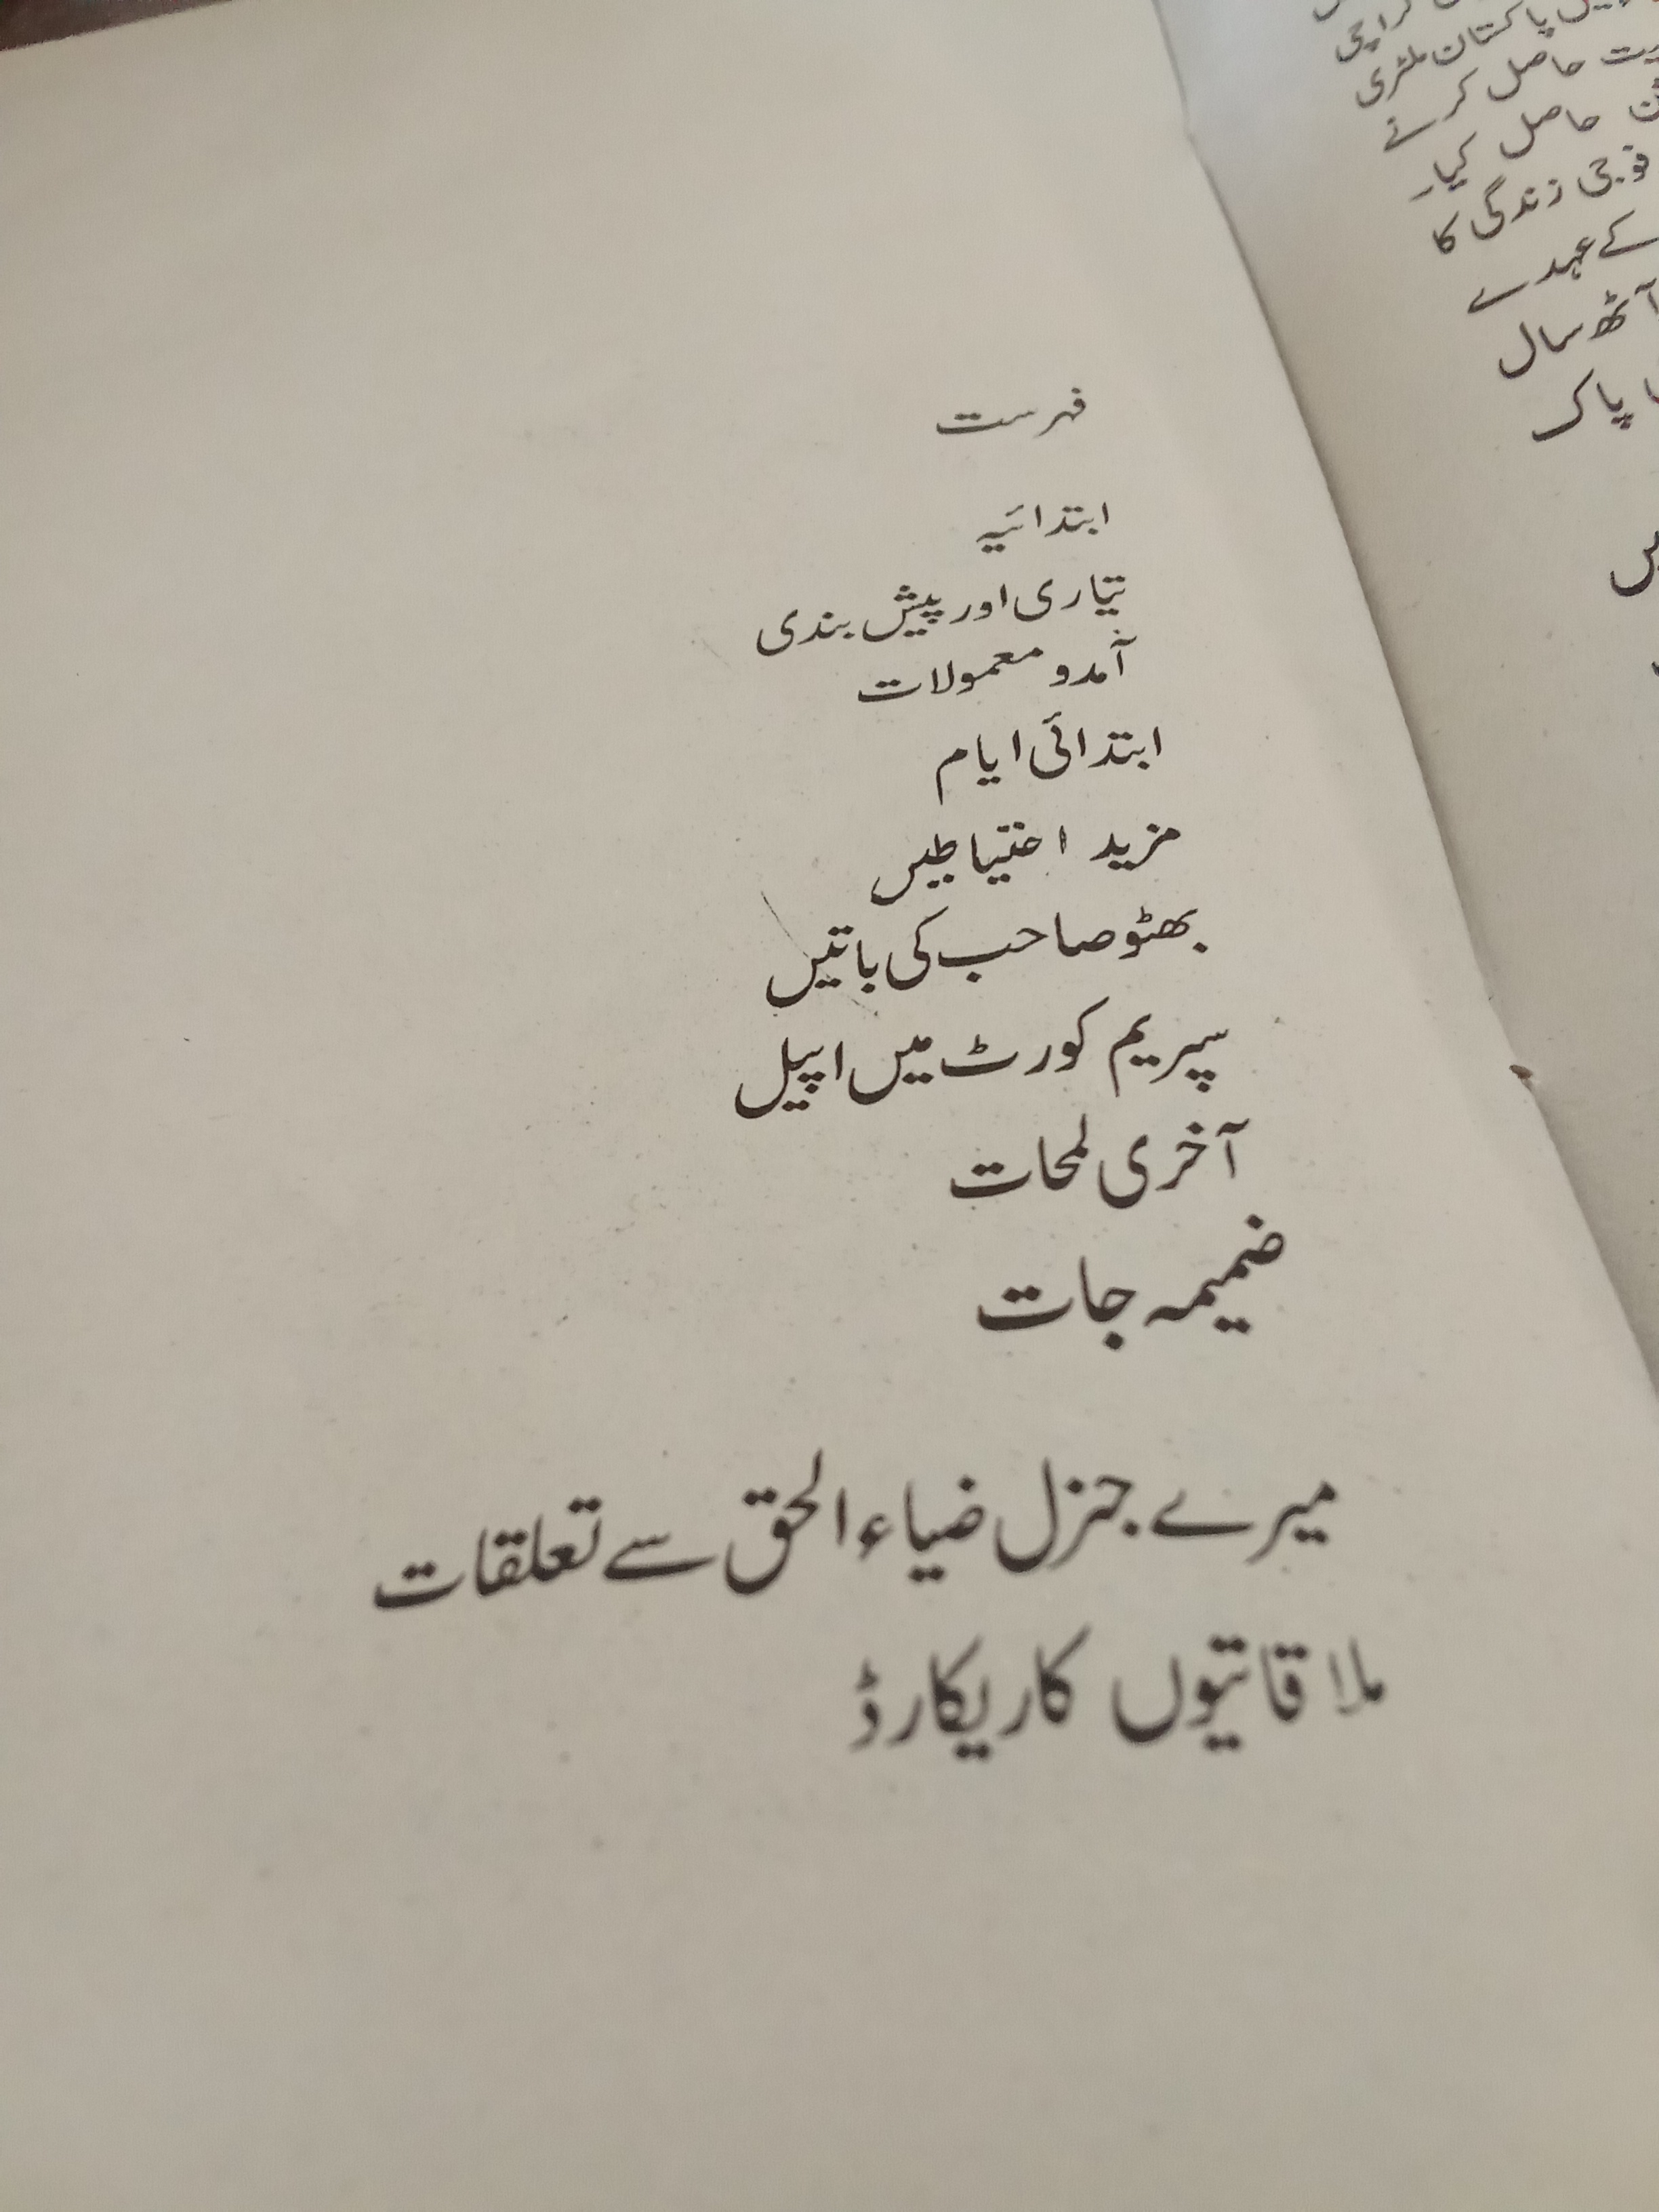 کراچی
پاکستان ملٹری
حاصل کرنے
حاصل کیا۔
فوجی زندگی کا
کے عہدے
آٹھ سال
پاک
فہرست
ابتدائیہ
تیاری اور پیش بندی
آمد و معمولات
ابتدائی ایام
مزید احتیاطیں
بھٹو صاحب کی باتیں
سپریم کورٹ میں اپیل
آخری لمحات
ضمیمہ جات
میرے جنرل ضیاء الحق سے تعلقات
ملاقاتیوں کا ریکارڈ